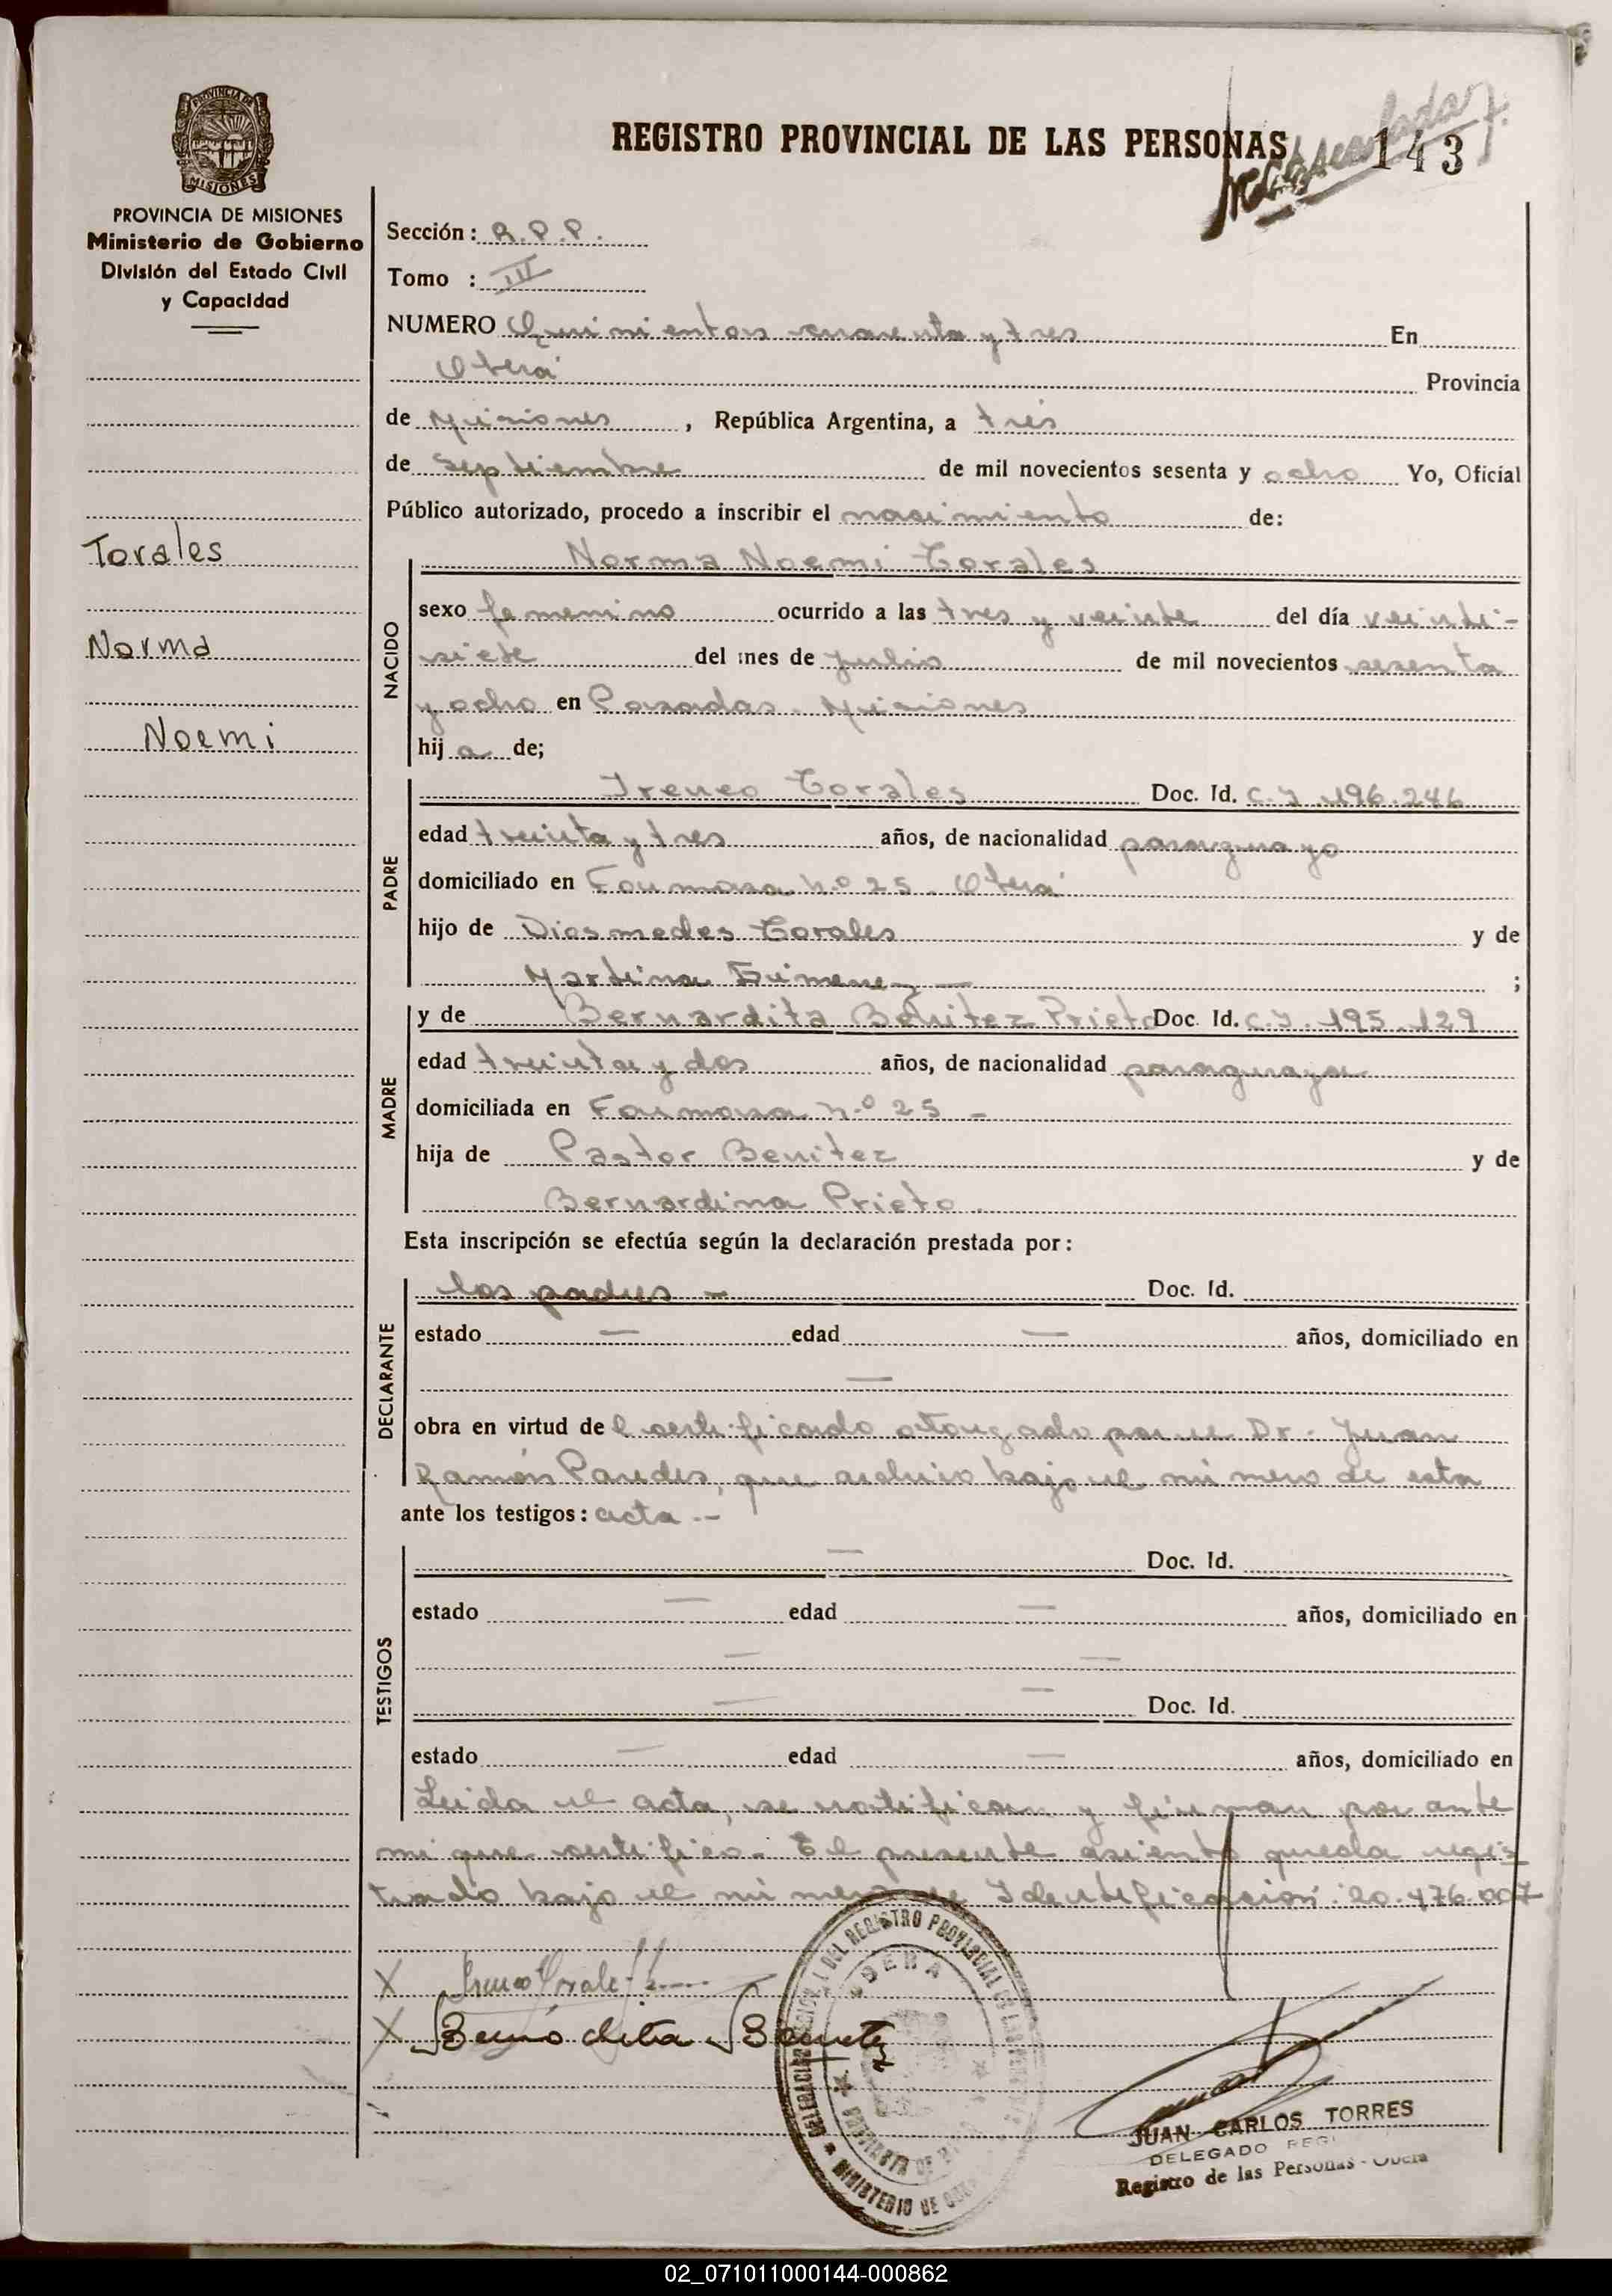 REGISTRO PROVINCIAL DE LAS PERSONAS
143
PROVINCIA DE MISIONES
PROVINCIA DE MISIONES
Ministerio de Gobierno
División del Estado Civil
y Capacidad
Torales
Norma
Noemi
Sección: R.P.P.
Tomo : III
NUMERO Quinientos cuarenta y tres En
Oberá Provincia
de Misiones, República Argentina, a tres
de Septiembre de mil novecientos sesenta y ocho Yo, Oficial
Público autorizado, procedo a inscribir el nacimiento de:
Norma Noemi Torales
NACIDO
sexo femenino ocurrido a las tres y veinte del día veinti-
siete del mes de julio de mil novecientos sesenta
y ocho en Posadas. Misiones
hija de;
PADRE
Ireneo Torales Doc. Id. C.I. 196.246
edad treinta y tres años, de nacionalidad paraguayo
domiciliado en Formosa n.º 25. Oberá
hijo de Diosmedes Torales y de
Martina Gimenez — ;
MADRE
y de Bernardita Benitez Prieto Doc. Id. C.I. 195.129
edad treinta y dos años, de nacionalidad paraguaya
domiciliada en Formosa n.º 25 -
hija de Pastor Benitez y de
Bernardina Prieto.
Esta inscripción se efectúa según la declaración prestada por:
DECLARANTE
los padres - Doc. Id.
estado — edad — años, domiciliado en
—
obra en virtud del certificado otorgado por el Dr. Juan
Ramón Paredes, que archivo bajo el número de esta
ante los testigos: acta.-
TESTIGOS
— Doc. Id.
estado — edad — años, domiciliado en
— —
— — Doc. Id.
estado — edad — años, domiciliado en
Leida el acta, se notifican y firman por ante
mi que certifico. El presente asiento queda regis
trado bajo el número de Identificación: 20.476.007
X Ireneo Torales
X Benitez
DELEGACION DEL REGISTRO PROVINCIAL DE LAS PERSONAS
OBERA
MINISTERIO DE
JUAN CARLOS TORRES
DELEGADO
Registro de las Personas - Oberá
02_071011000144-000862